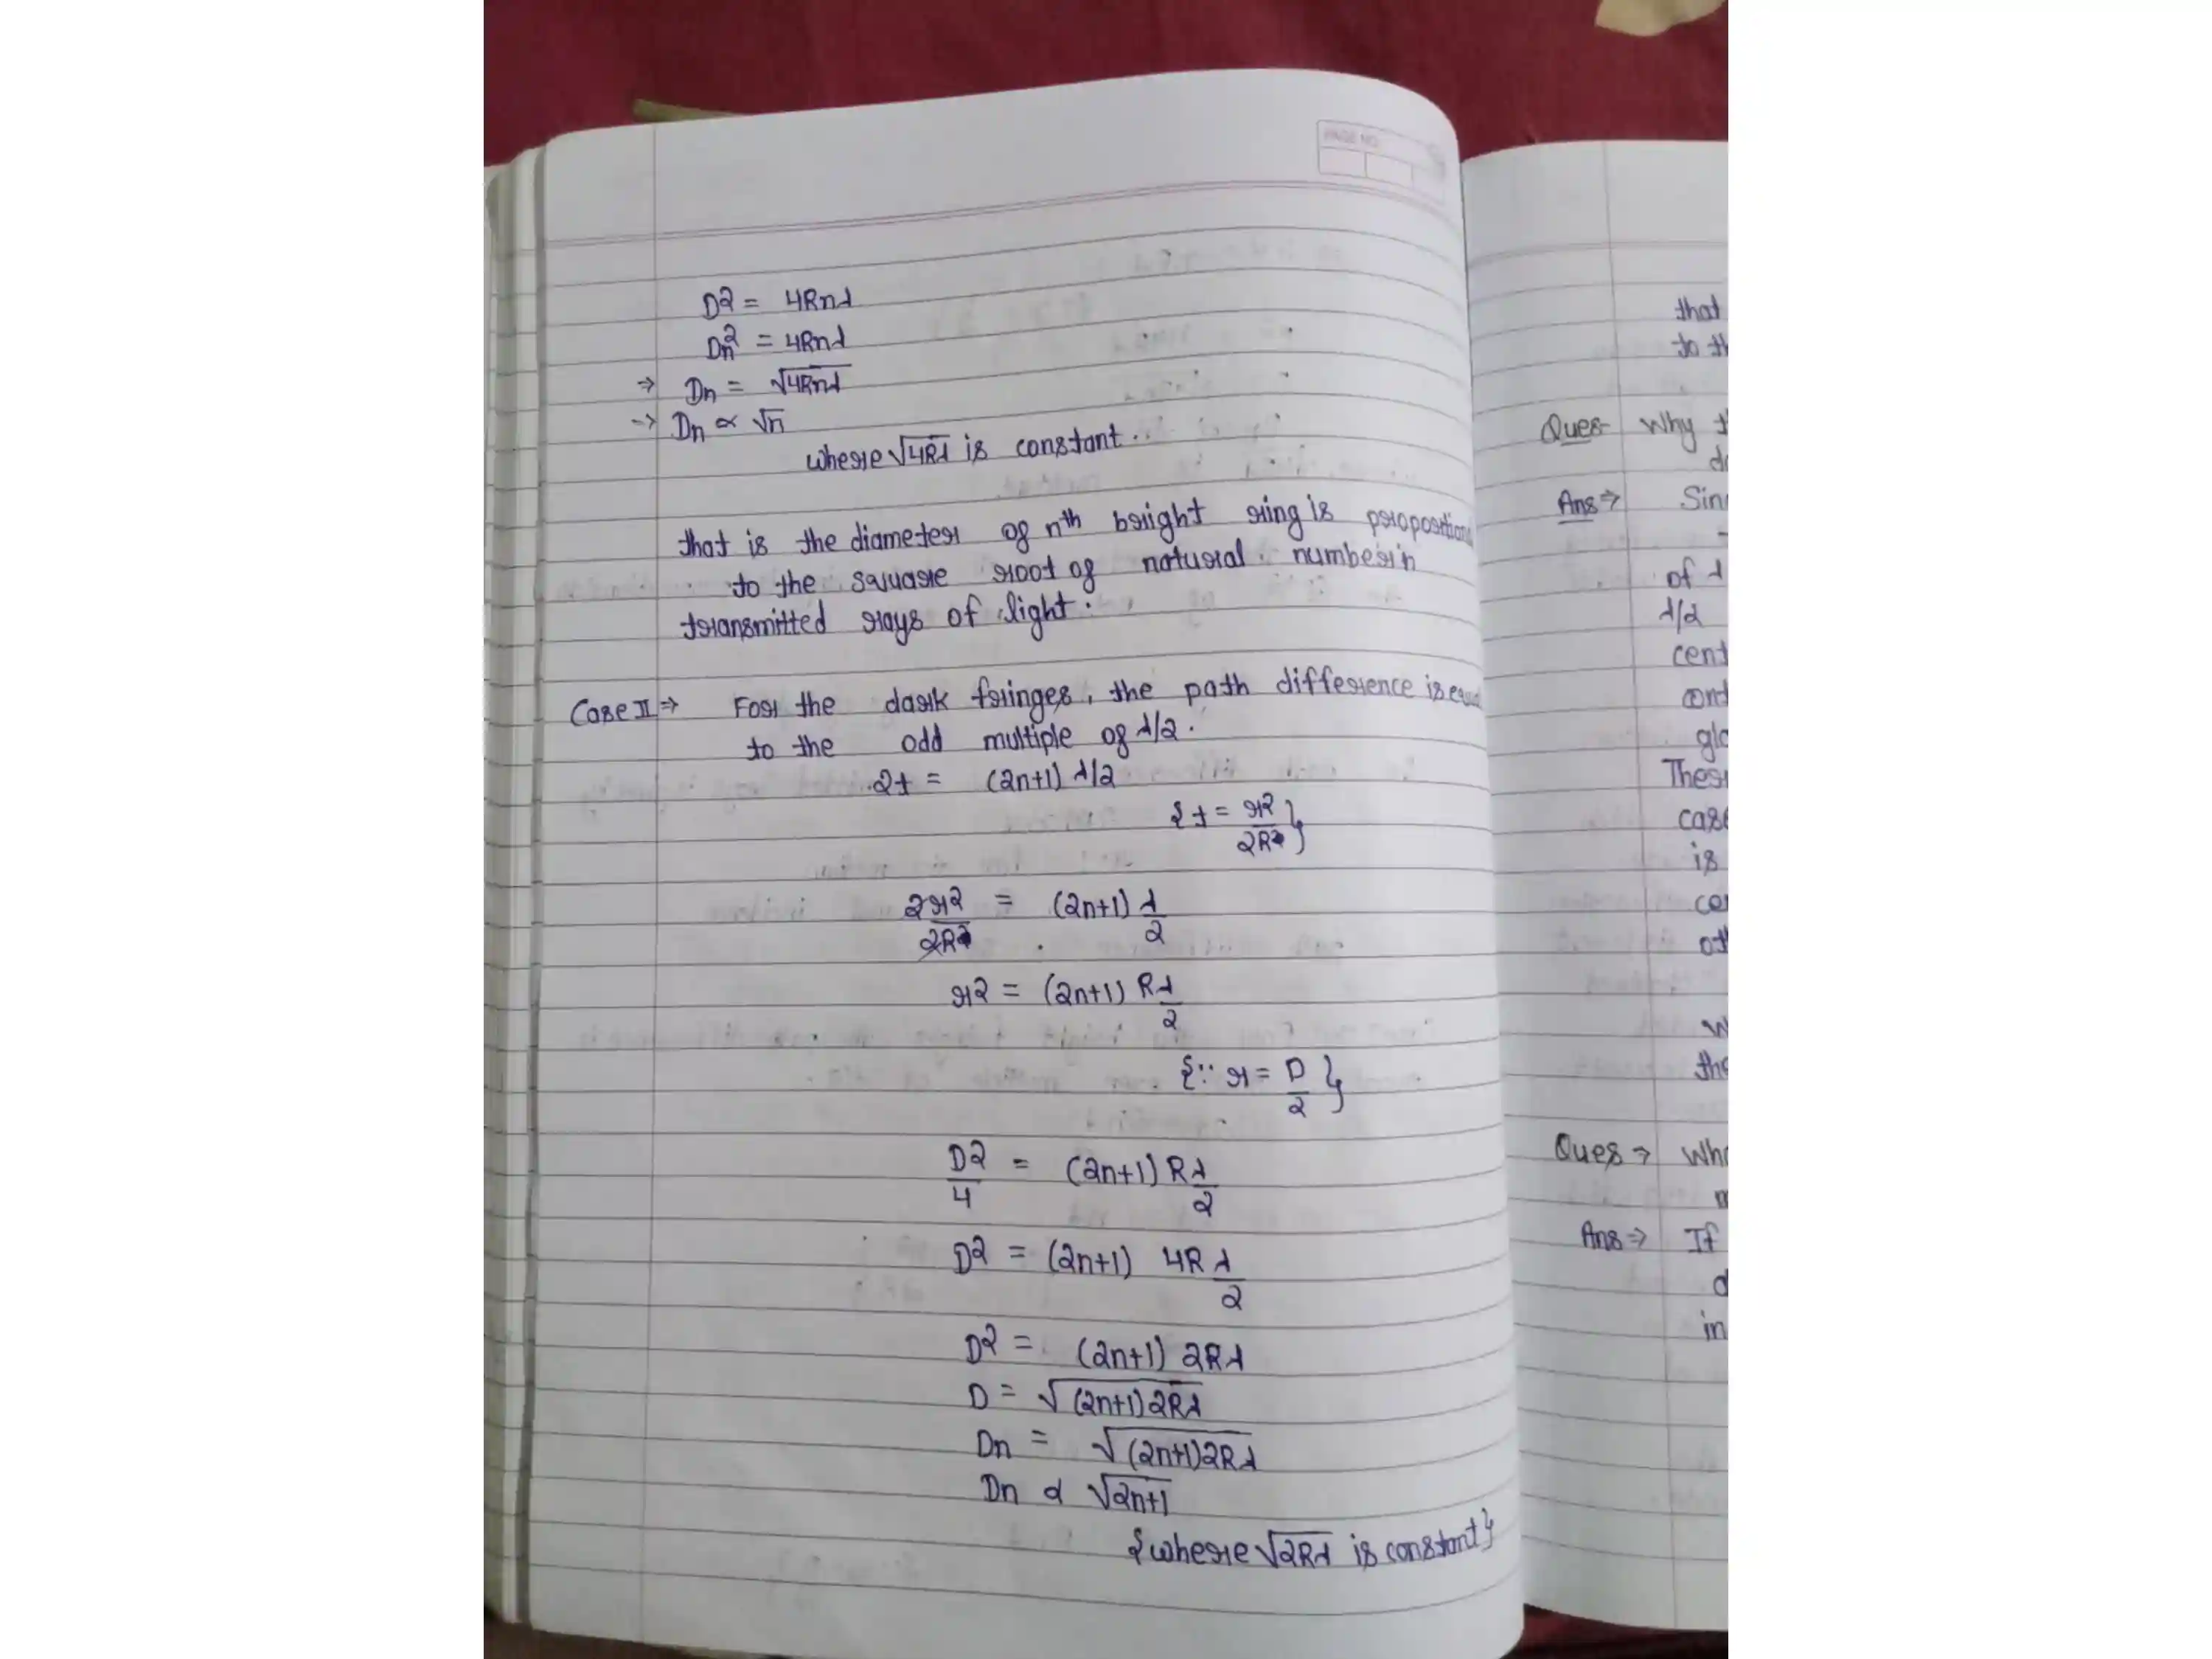 PAGE NO.
D² = 4Rnλ
Dn² = 4Rnλ
⇒ Dn = √4Rnλ
→ Dn ∝ √n
where √4Rλ is constant.
that is the diameter of nth bright ring is proportional
to the square root of natural number in
transmitted rays of light.
Case II ⇒ For the dark fringes, the path difference is equal
to the odd multiple of λ/2.
2t = (2n+1) λ/2
{t = r²/2R}
2r²/2R = (2n+1) λ/2
r² = (2n+1) Rλ/2
{∵ r = D/2}
D²/4 = (2n+1) Rλ/2
D² = (2n+1) 4Rλ/2
D² = (2n+1) 2Rλ
D = √(2n+1)2Rλ
Dn = √(2n+1)2Rλ
Dn ∝ √2n+1
{where √2Rλ is constant}
that
to th
Ques- Why t
Ans ⇒ Sin
of λ
λ/2
cent
cont
gla
Thes
case
is
ce
ot
w
the
Ques ⇒ Wh
Ans ⇒ If
in